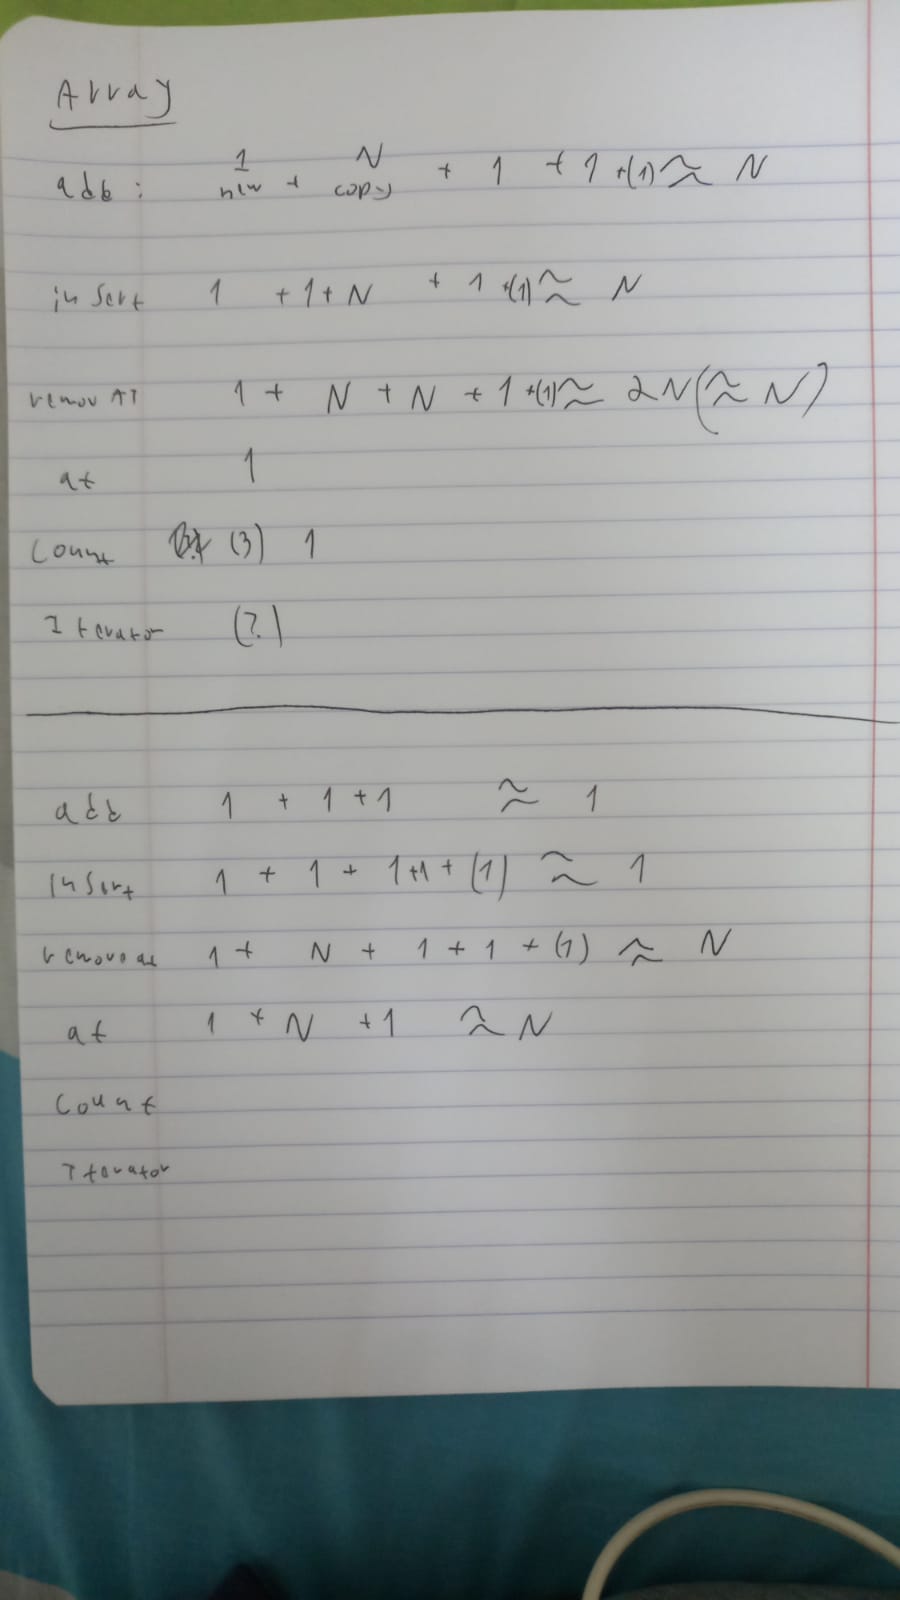 Array
add : 1 new + N copy + 1 + 1 +(1) ≈ N
insert 1 + 1 + N + 1 +(1) ≈ N
remov AT 1 + N + N + 1 +(1) ≈ 2N (≈ N)
at 1
Count (3) 1
Iterator (?)
add 1 + 1 + 1 ≈ 1
Insert 1 + 1 + 1+1 + (1) ≈ 1
remove at 1 + N + 1 + 1 + (1) ≈ N
at 1 + N + 1 ≈ N
Count
Iterator